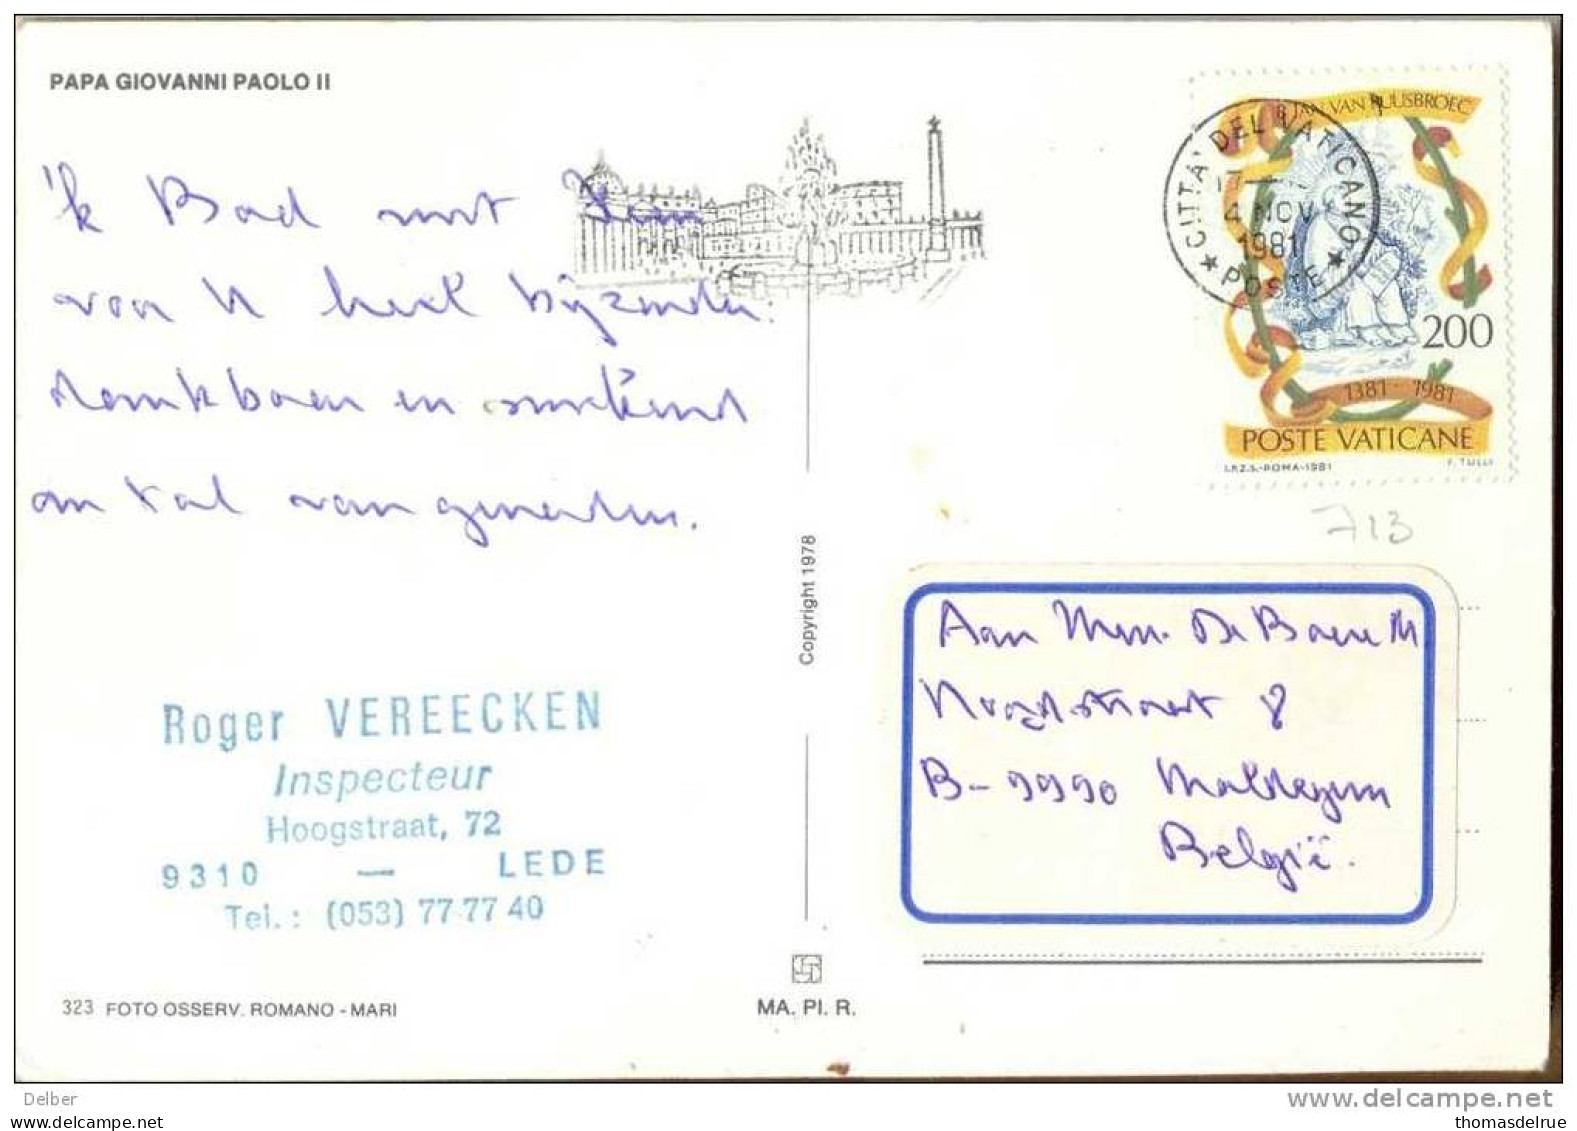 PAPA GIOVANNI PAOLO II
'k Bad met
voor U heel bijzonder.
dankbaar en
en tal van genaden.
Roger VEREECKEN
Inspecteur
Hoogstraat, 72
9310 — LEDE
Tel.: (053) 77 77 40
323 FOTO OSSERV. ROMANO - MARI
Copyright 1978
MA. PI. R.
CITTA' DEL VATICANO
4 NOV
1981
POSTE
B. JAN VAN RUUSBROEC
200
1381 - 1981
POSTE VATICANE
I.P.Z.S.-ROMA-1981
F. TULLI
713
Aan Mevr. De Baere M
Noordstraat 8
B-9990 Maldegem
België.
Delber
delcampe.net
thomasdelrue